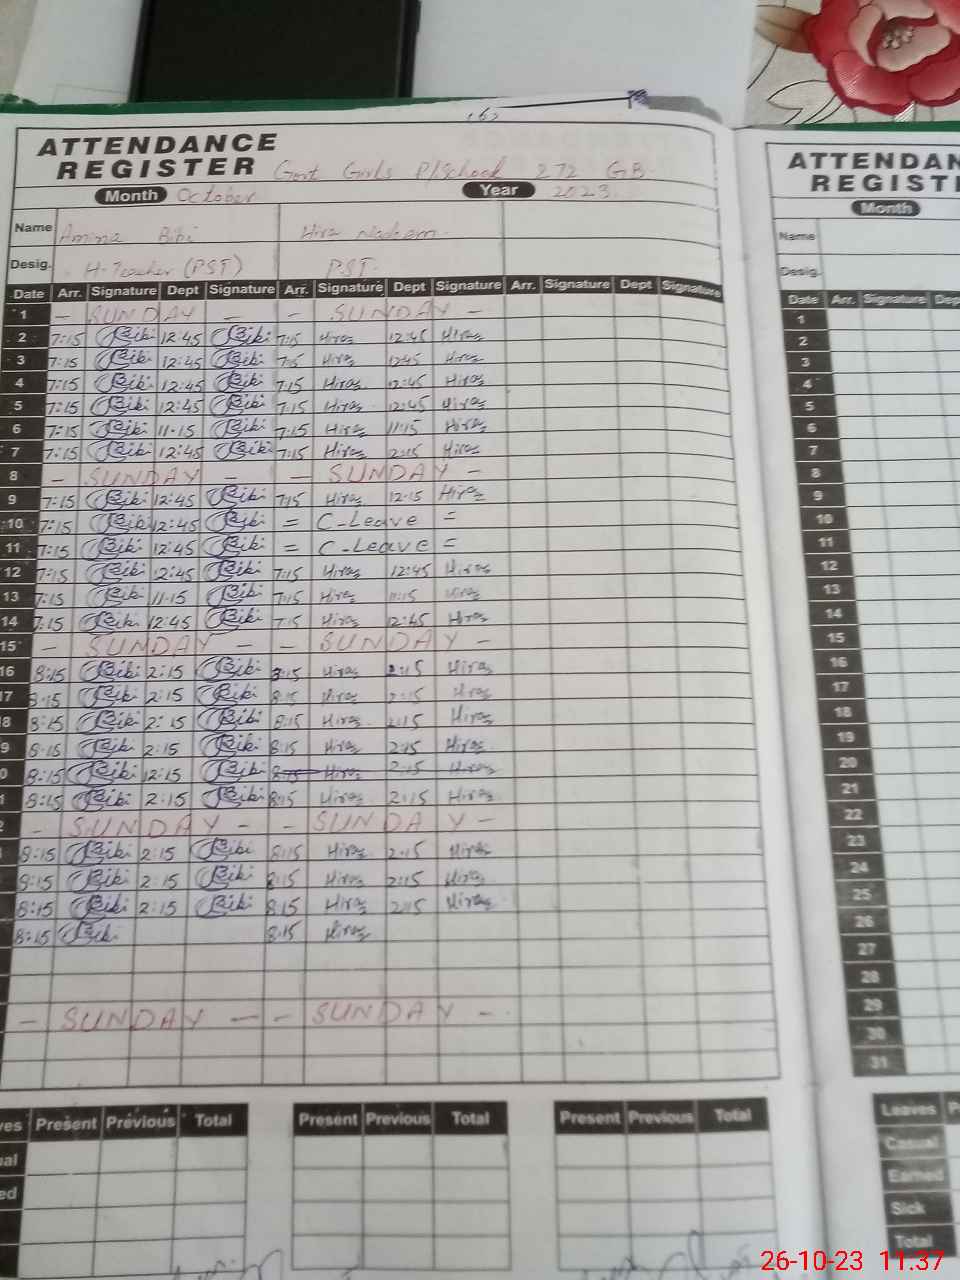 ATTENDANCE
REGISTER Govt Girls P/School 272 GB.
Month October Year 2023.
Name Amina Bibi Hira Nadeem.
Desig. H-Teacher (PST) PST.
Date Arr. Signature Dept Signature Arr. Signature Dept Signature Arr. Signature Dept Signature
1 - SUNDAY - - SUNDAY -
2 7:15 Bibi 12:45 Bibi 7:15 Hiraz 12:45 Hiraz
3 7:15 Bibi 12:45 Bibi 7:15 Hiraz 12:45 Hiraz
4 7:15 Bibi 12:45 Bibi 7:15 Hiraz 12:45 Hiraz
5 7:15 Bibi 12:45 Bibi 7:15 Hiraz 12:45 Hiraz
6 7:15 Bibi 11:15 Bibi 7:15 Hiraz 11:15 Hiraz
7 7:15 Bibi 12:45 Bibi 7:15 Hiraz Hiraz
8 - SUNDAY - - SUNDAY -
9 7:15 Bibi 12:45 Bibi 7:15 Hiraz 12:15 Hiraz
10 7:15 Bibi 12:45 Bibi = C-Leave =
11 7:15 Bibi 12:45 Bibi = C-Leave =
12 7:15 Bibi 12:45 Bibi 7:15 Hiraz 12:45 Hiraz
13 7:15 Bibi 11:15 Bibi 7:15 Hiraz 11:15 Hiraz
14 7:15 Bibi 12:45 Bibi 7:15 Hiraz 12:45 Hiraz
15 - SUNDAY - - SUNDAY -
16 8:15 Bibi 2:15 Bibi 8:15 Hiraz 2:15 Hiraz
17 8:15 Bibi 2:15 Bibi 8:15 Hiraz 2:15 Hiraz
8 8:15 Bibi 2:15 Bibi 8:15 Hiraz 2:15 Hiraz
9 8:15 Bibi 2:15 Bibi 8:15 Hiraz 2:15 Hiraz
0 8:15 Bibi 12:15 Bibi 8:15 Hiraz 2:15 Hiraz
1 8:15 Bibi 2:15 Bibi 8:15 Hiraz 2:15 Hiraz
2 - SUNDAY - - SUNDAY -
8:15 Bibi 2:15 Bibi 8:15 Hiraz 2:15 Hiraz
8:15 Bibi 2:15 Bibi 8:15 Hiraz 2:15 Hiraz
8:15 Bibi 2:15 Bibi 8:15 Hiraz 2:15 Hiraz
8:15 Bibi 8:15 Hiraz
- SUNDAY - - SUNDAY -
ves Present Previous Total Present Previous Total Present Previous Total
ual
ed
ATTENDAN
REGIST
Month
Name
Desig.
Date Arr. Signature Dep
1
2
3
4
5
6
7
8
9
10
11
12
13
14
15
16
17
18
19
20
21
22
23
24
25
26
27
28
29
30
31
Leaves P
Casual
Earned
Sick
Total
26-10-23 11.37